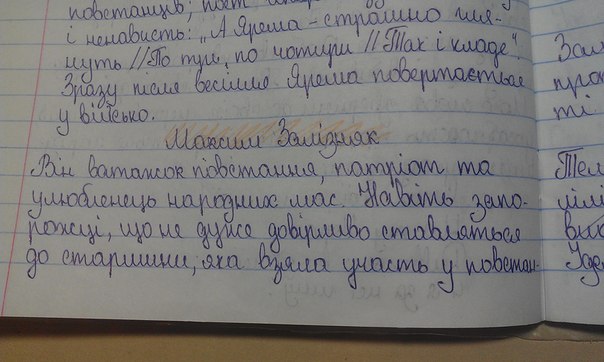 повстанців; поет
і ненависть: „А Ярема – страшно гля-
нуть // По три, по чотири // Так і кладе".
Зразу після весілля Ярема повертається
у військо.
Максим Залізняк
Він ватажок повстання, патріот та
улюбленець народних мас. Навіть запо-
рожці, що не дуже довірливо ставляться
до старшини, яка взяла участь у повстан-
Зал
про
ті
Тел
ціл
Уде